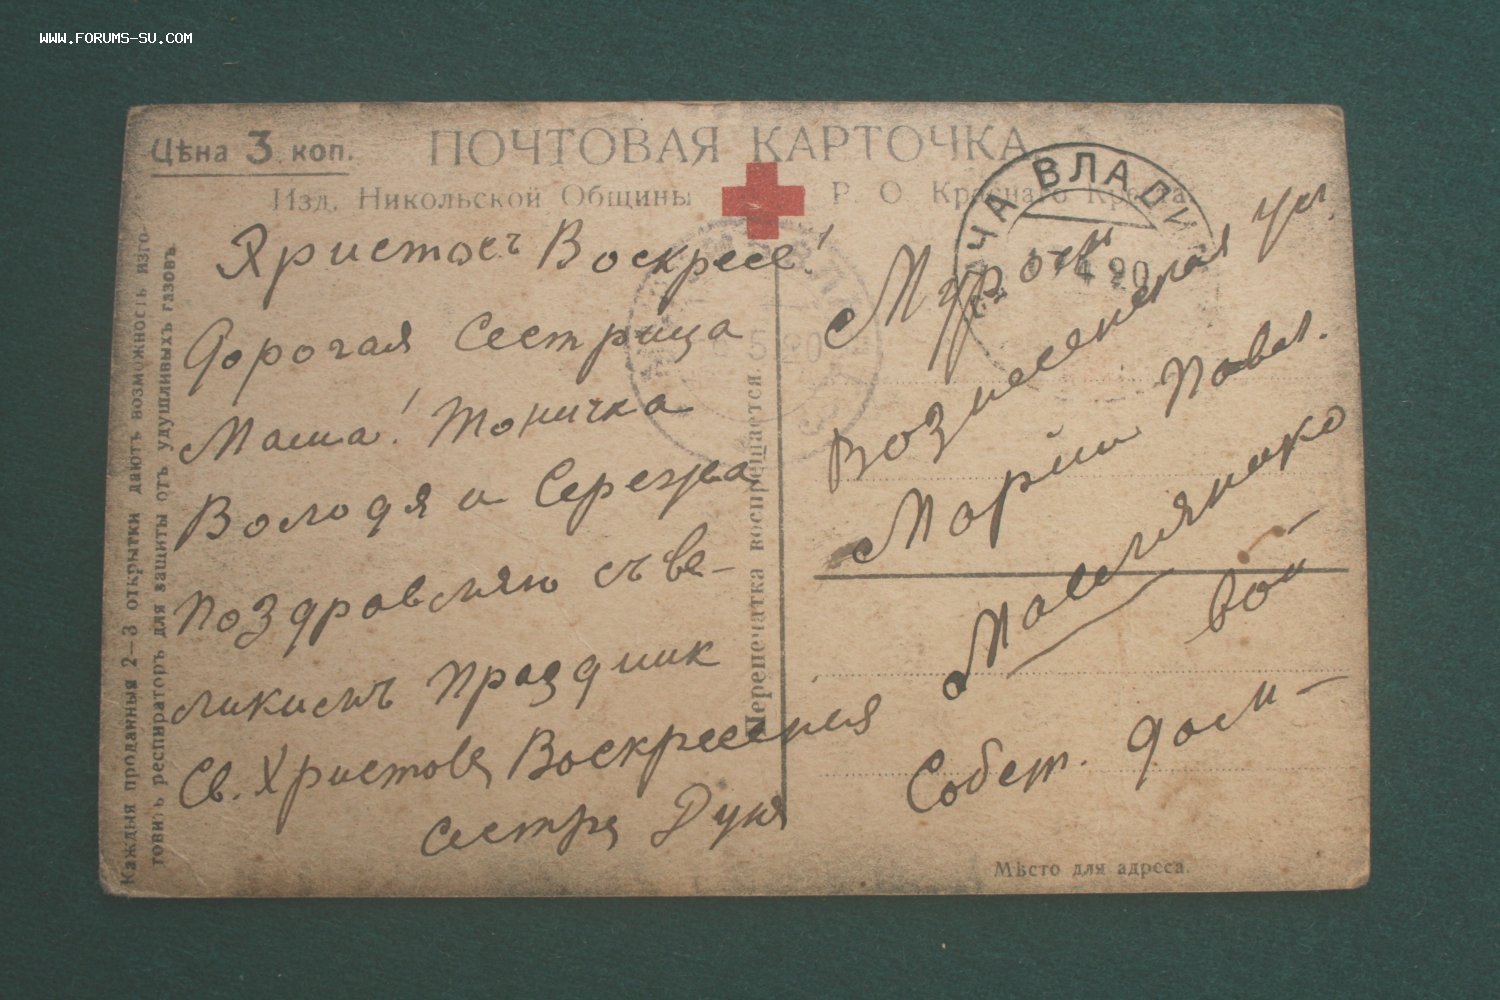 WWW.FORUMS-SU.COM
Цѣна 3 коп.
ПОЧТОВАЯ КАРТОЧКА
Изд. Никольской Общины Р. О. Краснаго Креста.
Христосъ Воскресе!
Дорогая Сестрица
Маша! Тоничка
Володя и Сережа
поздравляю съ ве-
ликимъ праздник
Св. Христова Воскресения
сестра Дуня
Вознесенская ул.
Марии Павл.
Павлянко
Собст. дом
вои
ВЛАДИ
4 20
5 20
Перепечатка воспрещается.
Мѣсто для адреса.
Каждыя проданныя 2–3 открытки даютъ возможность изго-
товить респираторъ для защиты отъ удушливыхъ газовъ.